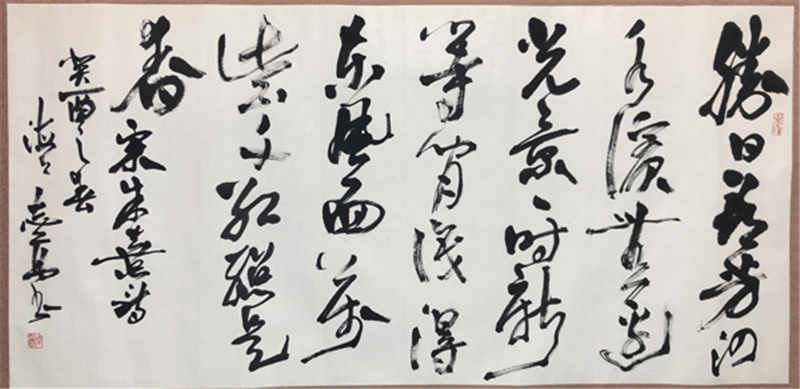 勝日尋芳泗
水濱無邊
光景一時新
等閒識得
東風面萬
紫千紅總是
春 宋朱熹詩
癸酉之春
志書